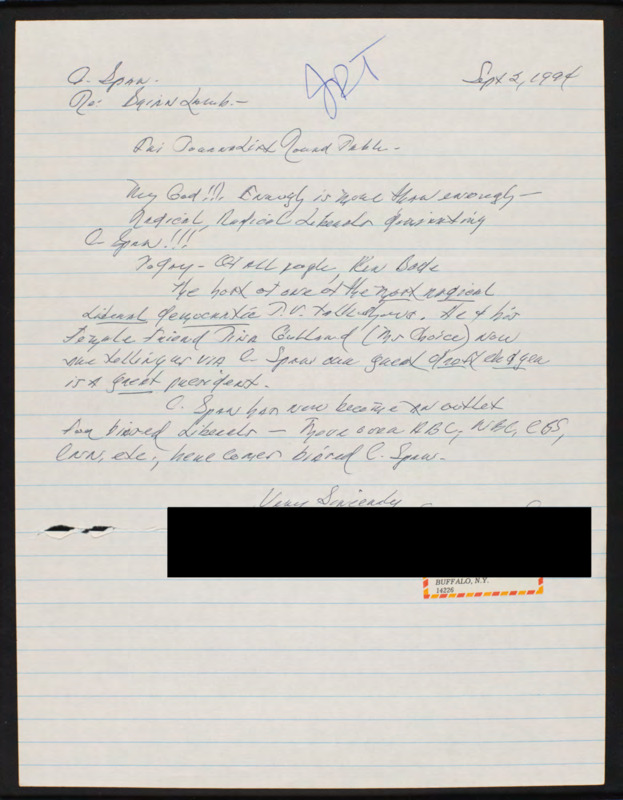 JRT
Sept 2, 1994
C. Span.
Re: Brian Lamb. -
The Journalist Round Table -
My God!!! Enough is more than enough -
Radical, Radical Liberals dominating
C-Span!!!
Today - Of all people, Ken Bode
The host of one of the most radical
Liberal democratic T.V. talk shows. He & his
Female Friend Tina (Ms Choice) now
are telling us via C. Span our great draft dodger
is a great president.
C. Span has now become an outlet
for biased Liberals - Move over ABC, NBC, CBS,
CNN, etc., here comes biased C. Span.
Very Sincerely
BUFFALO, N.Y.
14226